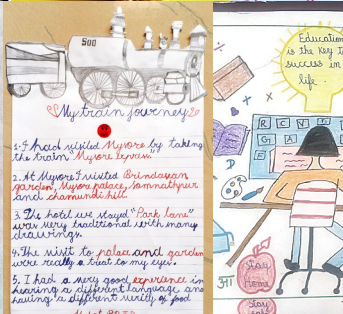 500
My train journey
1. I had visited Mysore by taking
the train "Mysore Express."
2. At Mysore I visited Brindavan
garden, Mysore palace, Somnathpur
and chamundi hill.
3. The hotel we stayed "Park lane"
was very traditional with many
drawings.
4. The visit to palace and garden
were really a treat to my eyes.
5. I had a very good experience in
hearing a different language and
having a different verity of food
Education
is the key to
success in
life.
Stay
Home
Stay